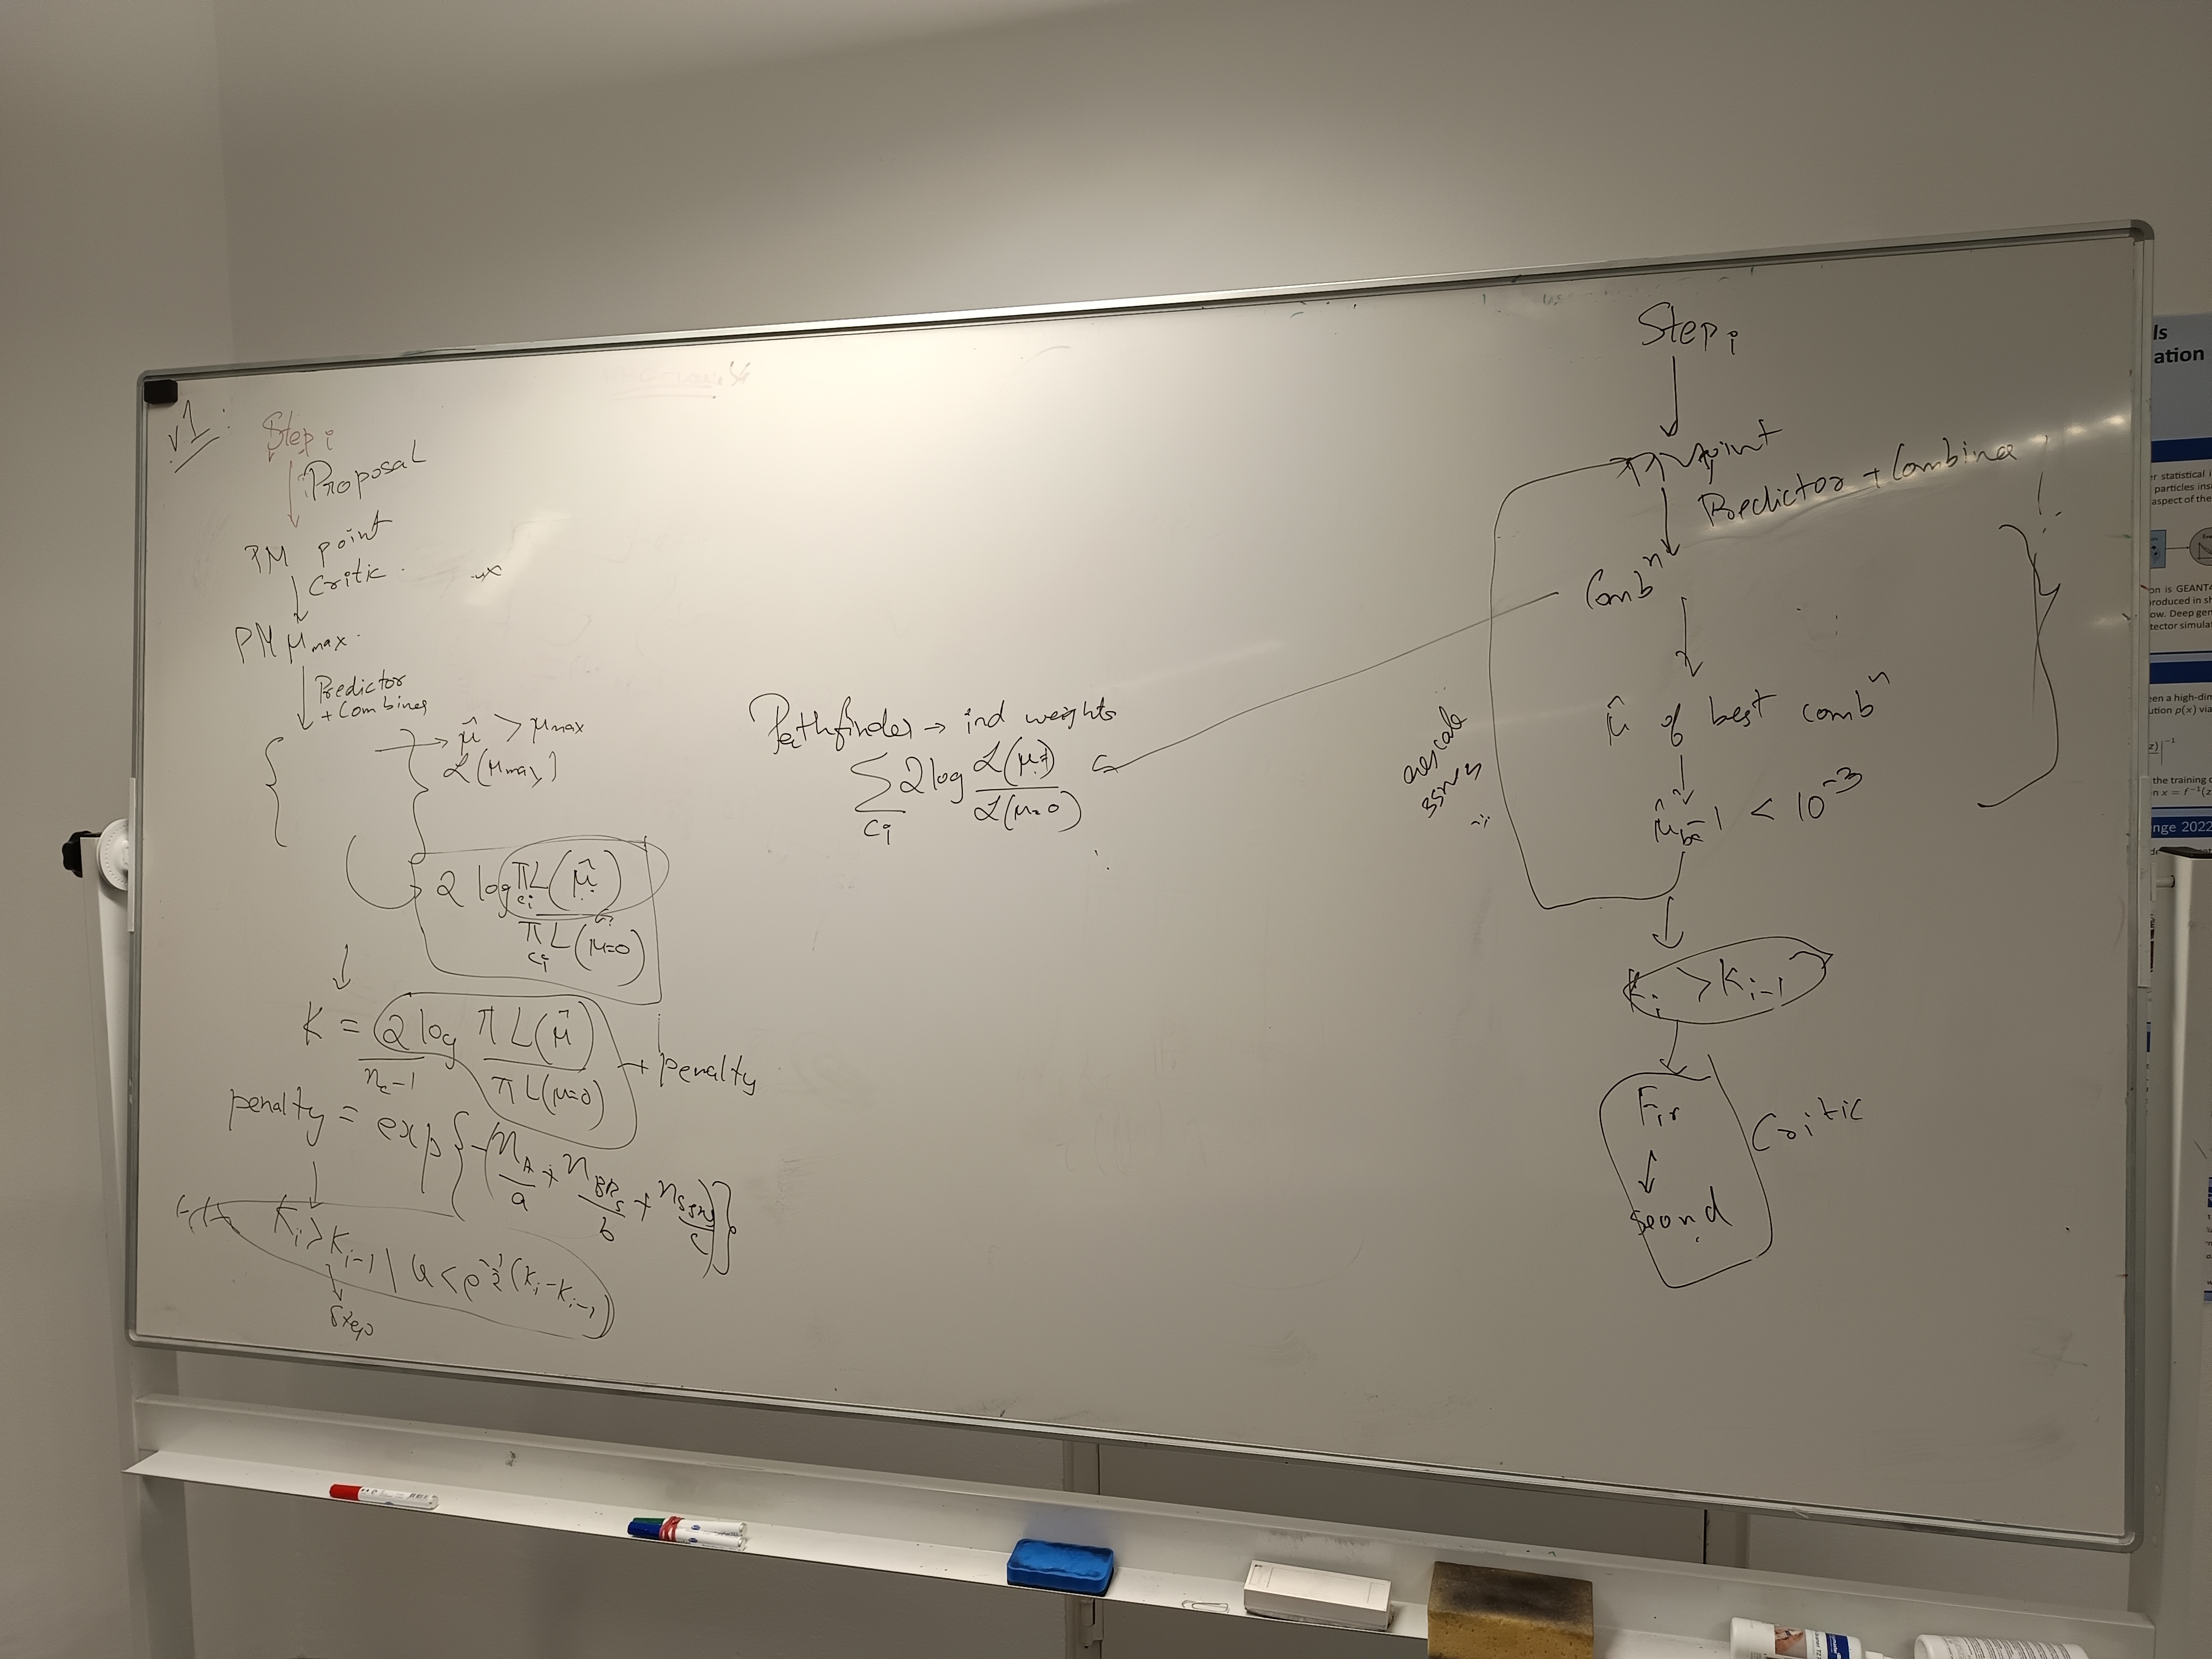 v1:
Step i
Proposal
PM point
Critic.
PM μmax.
Predictor
+ Combiner
{ } → μ̂ > μmax
ℒ(μmax)
2 log π_ci L(μ̂) / π_ci L(μ=0)
K = 2 log / n_c-1 π L(μ̂) / π L(μ=0) + penalty
penalty = exp { -( n_A / a + n_BRs / b + n_SSMs / c ) }
K_i > K_i-1 | u < e^½(K_i - K_i-1)
Step
Pathfinder → ind weights
Σ_ci 2 log ℒ(μ=1) / ℒ(μ=0)
Step i
point
Predictor + Combiner
Comb^n
μ̂ of best comb^n
μ̂_bc - 1 < 10^-3
SSMs
K_i > K_i-1
Fir
↓
Second
Critic
ls
ation
r statistical i
particles ins
aspect of the
on is GEANT4
roduced in sh
ow. Deep gen
tector simulat
een a high-dim
ution p(x) via
the training o
n x = f^-1(z
nge 2022